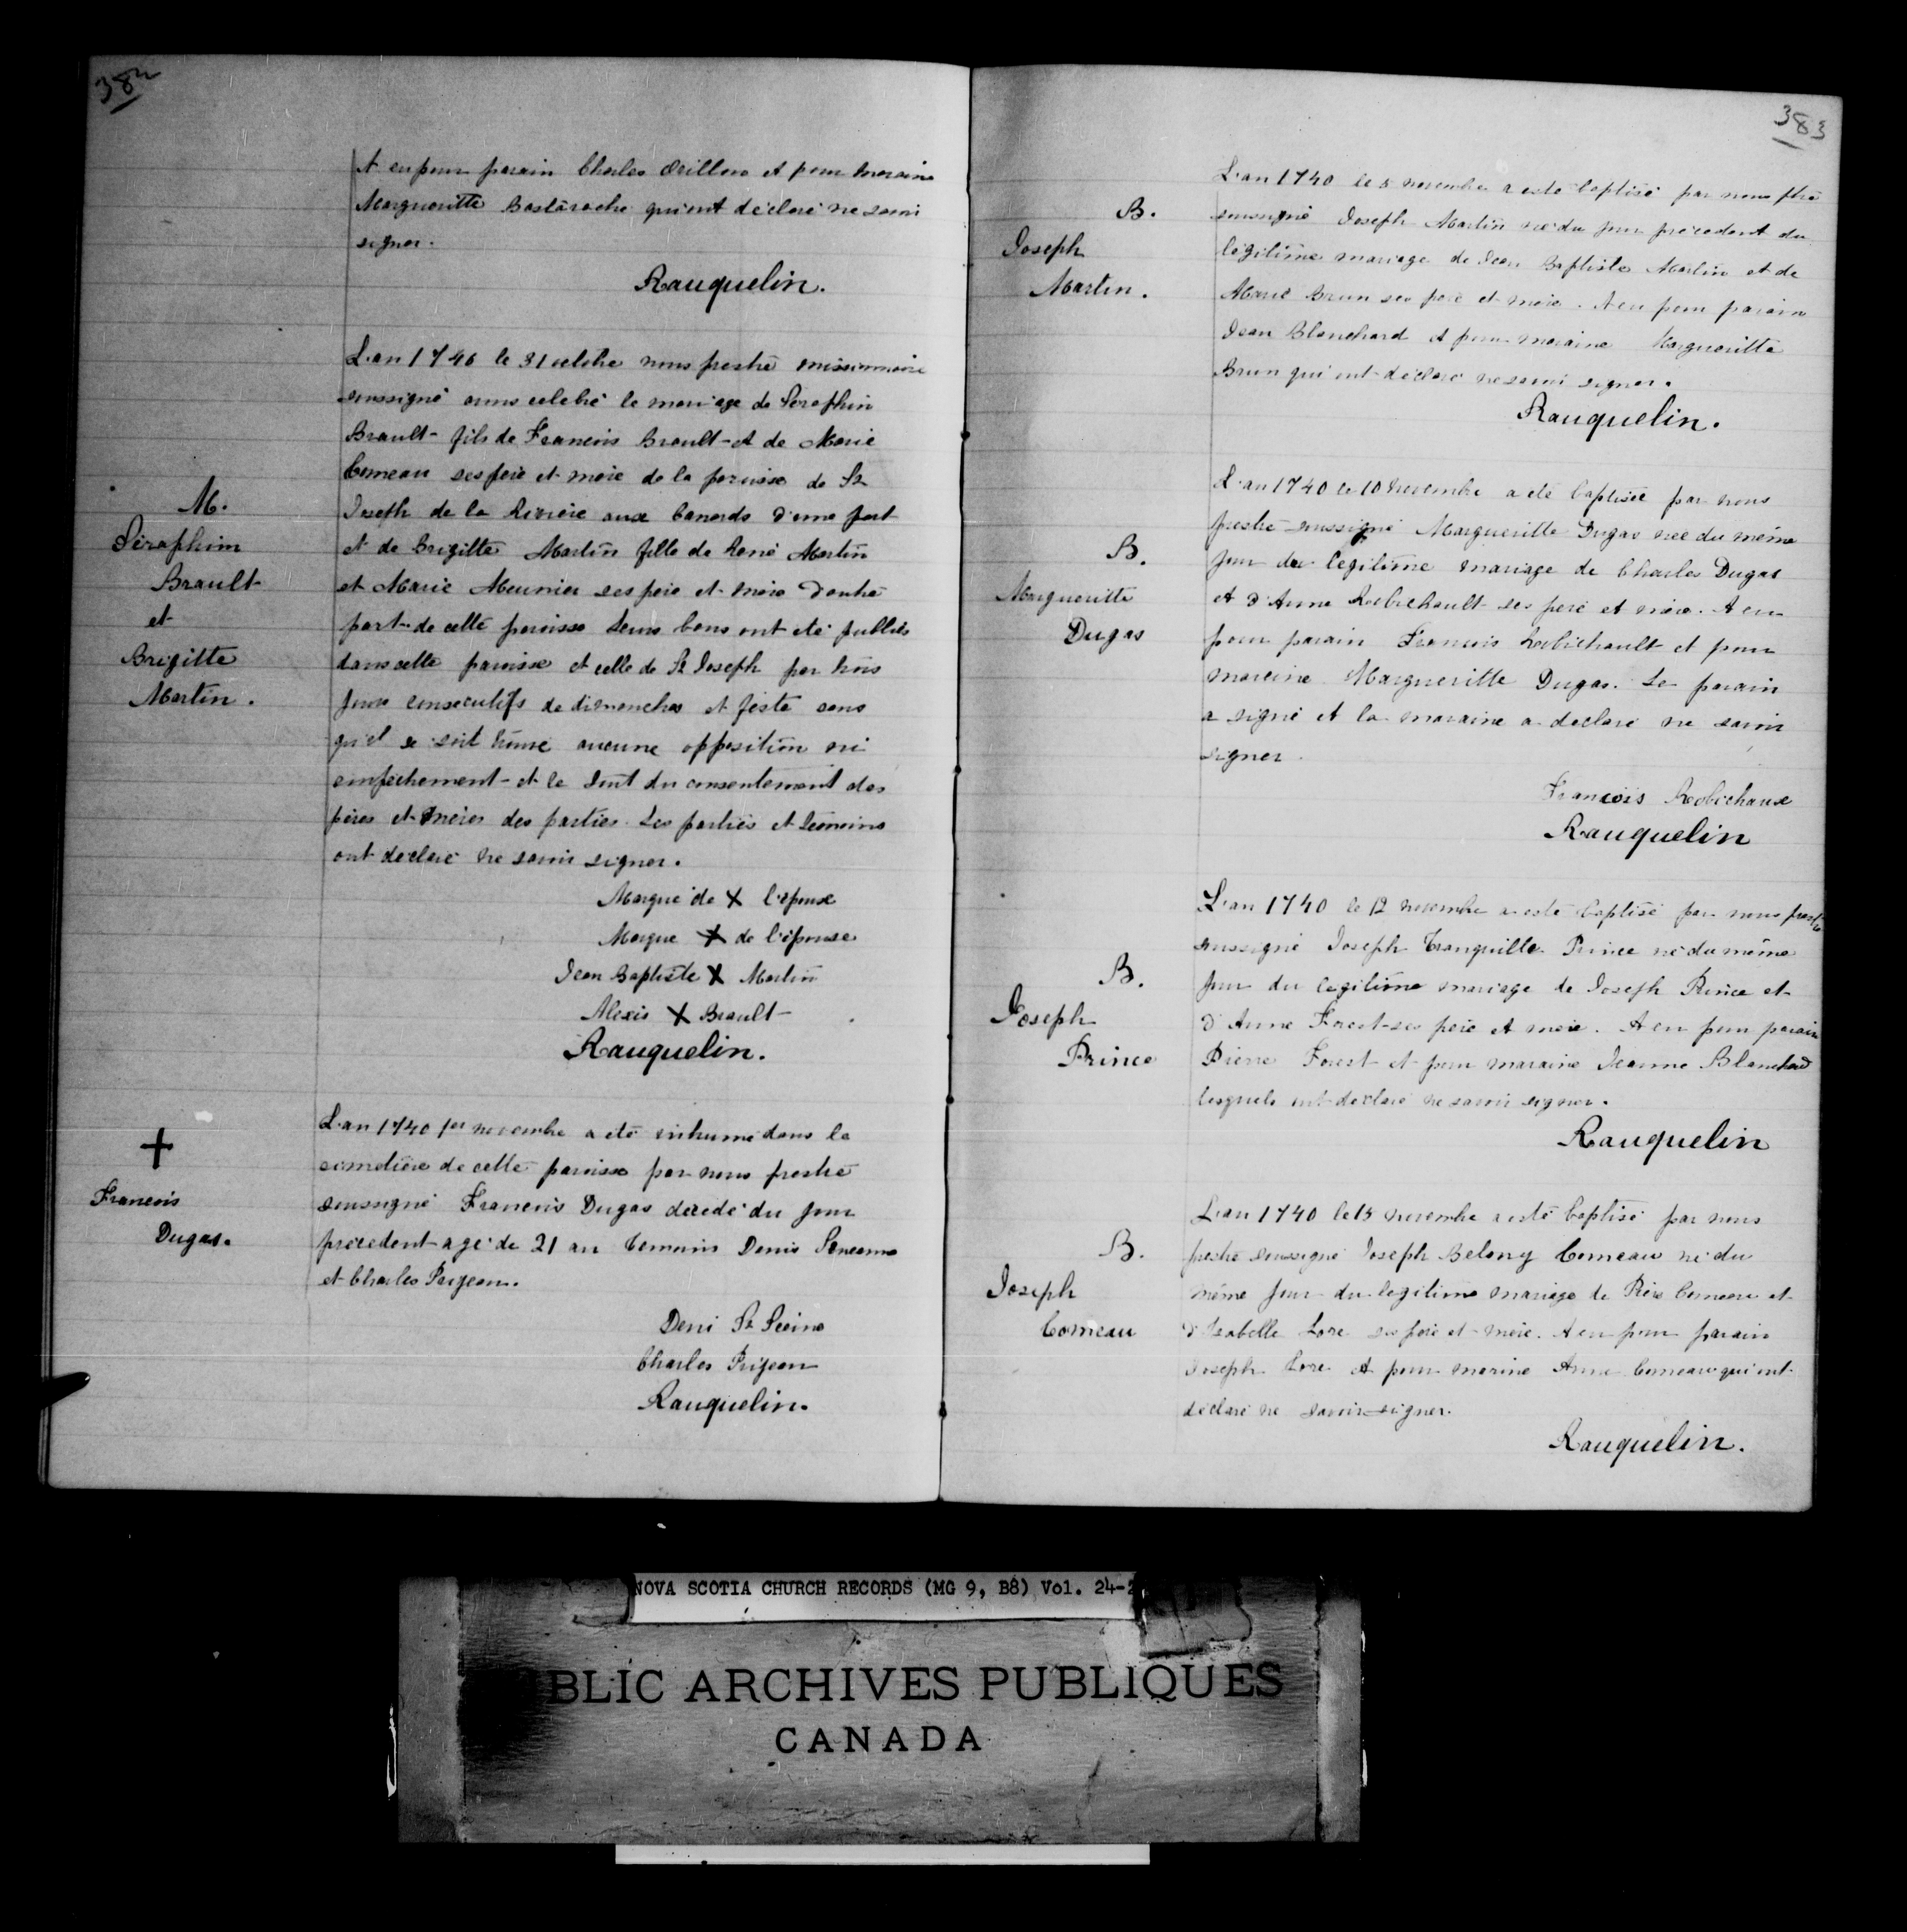 382
A eu pour parain Charles Orillon et pour maraine
Margueritte Bastarache qui ont déclaré ne savoir
signer.
Rauquelin.
M.
Séraphim
Brault
et
Brigitte
Martin.
L'an 1740 le 31 octobre nous prestre missionnaire
soussigné avons celebré le mariage de Séraphin
Brault fils de Francois Brault et de Marie
Comeau ses père et mère de la paroisse de St
Joseph de la Rivière aux Canards d'une part
et de Brigitte Martin fille de René Martin
et Marie Meunier ses père et mère d'autre
part de cette paroisse Leurs bans ont eté publiés
dans cette paroisse et celle de St Joseph par trois
jours consecutifs de dimanches et feste sans
qu'il se soit trouvé aucune opposition ni
empechement et le tout du consentement des
pères et mères des parties. Les parties et temoins
ont déclaré ne savoir signer.
Marque de X l'epoux
Marque X de l'épouse
Jean Baptiste X Martin
Alexis X Brault
Rauquelin.
+
Francois
Dugas.
L'an 1740 1er novembre a eté inhumé dans le
cimetière de cette paroisse par nous prestre
soussigné Francois Dugas décedé du jour
precedent agé de 21 an temoins Denis
et Charles Prijean.
Deni St
Charles Prijean
Rauquelin.
383
B.
Joseph
Martin.
L'an 1740 le 5 novembre a esté baptisé par nous ptre
soussigné Joseph Martin né du jour précedent du
légitime mariage de Jean Baptiste Martin et de
Marie Brun ses père et mère. A eu pour parain
Jean Blanchard et pour maraine Margueritte
Brun qui ont déclaré ne savoir signer.
Rauquelin.
B.
Margueritte
Dugas
L'an 1740 le 10 novembre a eté baptisée par nous
prestre soussigné Margueritte Dugas née du même
jour du legitime mariage de Charles Dugas
et d'Anne Robichault ses père et mère. A eu
pour parain Francois Robichault et pour
maraine Margueritte Dugas. Le parain
a signé et la maraine a declaré ne savoir
signer.
Francois Robichaux
Rauquelin
B.
Joseph
Prince
L'an 1740 le 12 novembre a esté baptisé par nous prestre
soussigné Joseph Tranquille Prince né du même
jour du legitime mariage de Joseph Prince et
d'Anne Forest ses père et mère. A eu pour parain
Pierre Forest et pour maraine Jeanne Blanchard
lesquels ont déclaré ne savoir signer.
Rauquelin
B.
Joseph
Comeau
L'an 1740 le 15 novembre a esté baptisé par nous
prestre soussigné Joseph Belony Comeau né du
même jour du legitime mariage de Comeau et
d'Isabelle Lore ses père et mère. A eu pour parain
Joseph Lore et pour marine Anne Comeau qui ont
déclaré ne savoir signer.
Rauquelin.
NOVA SCOTIA CHURCH RECORDS (MG 9, B8) Vol. 24-2
BLIC ARCHIVES PUBLIQUES
CANADA